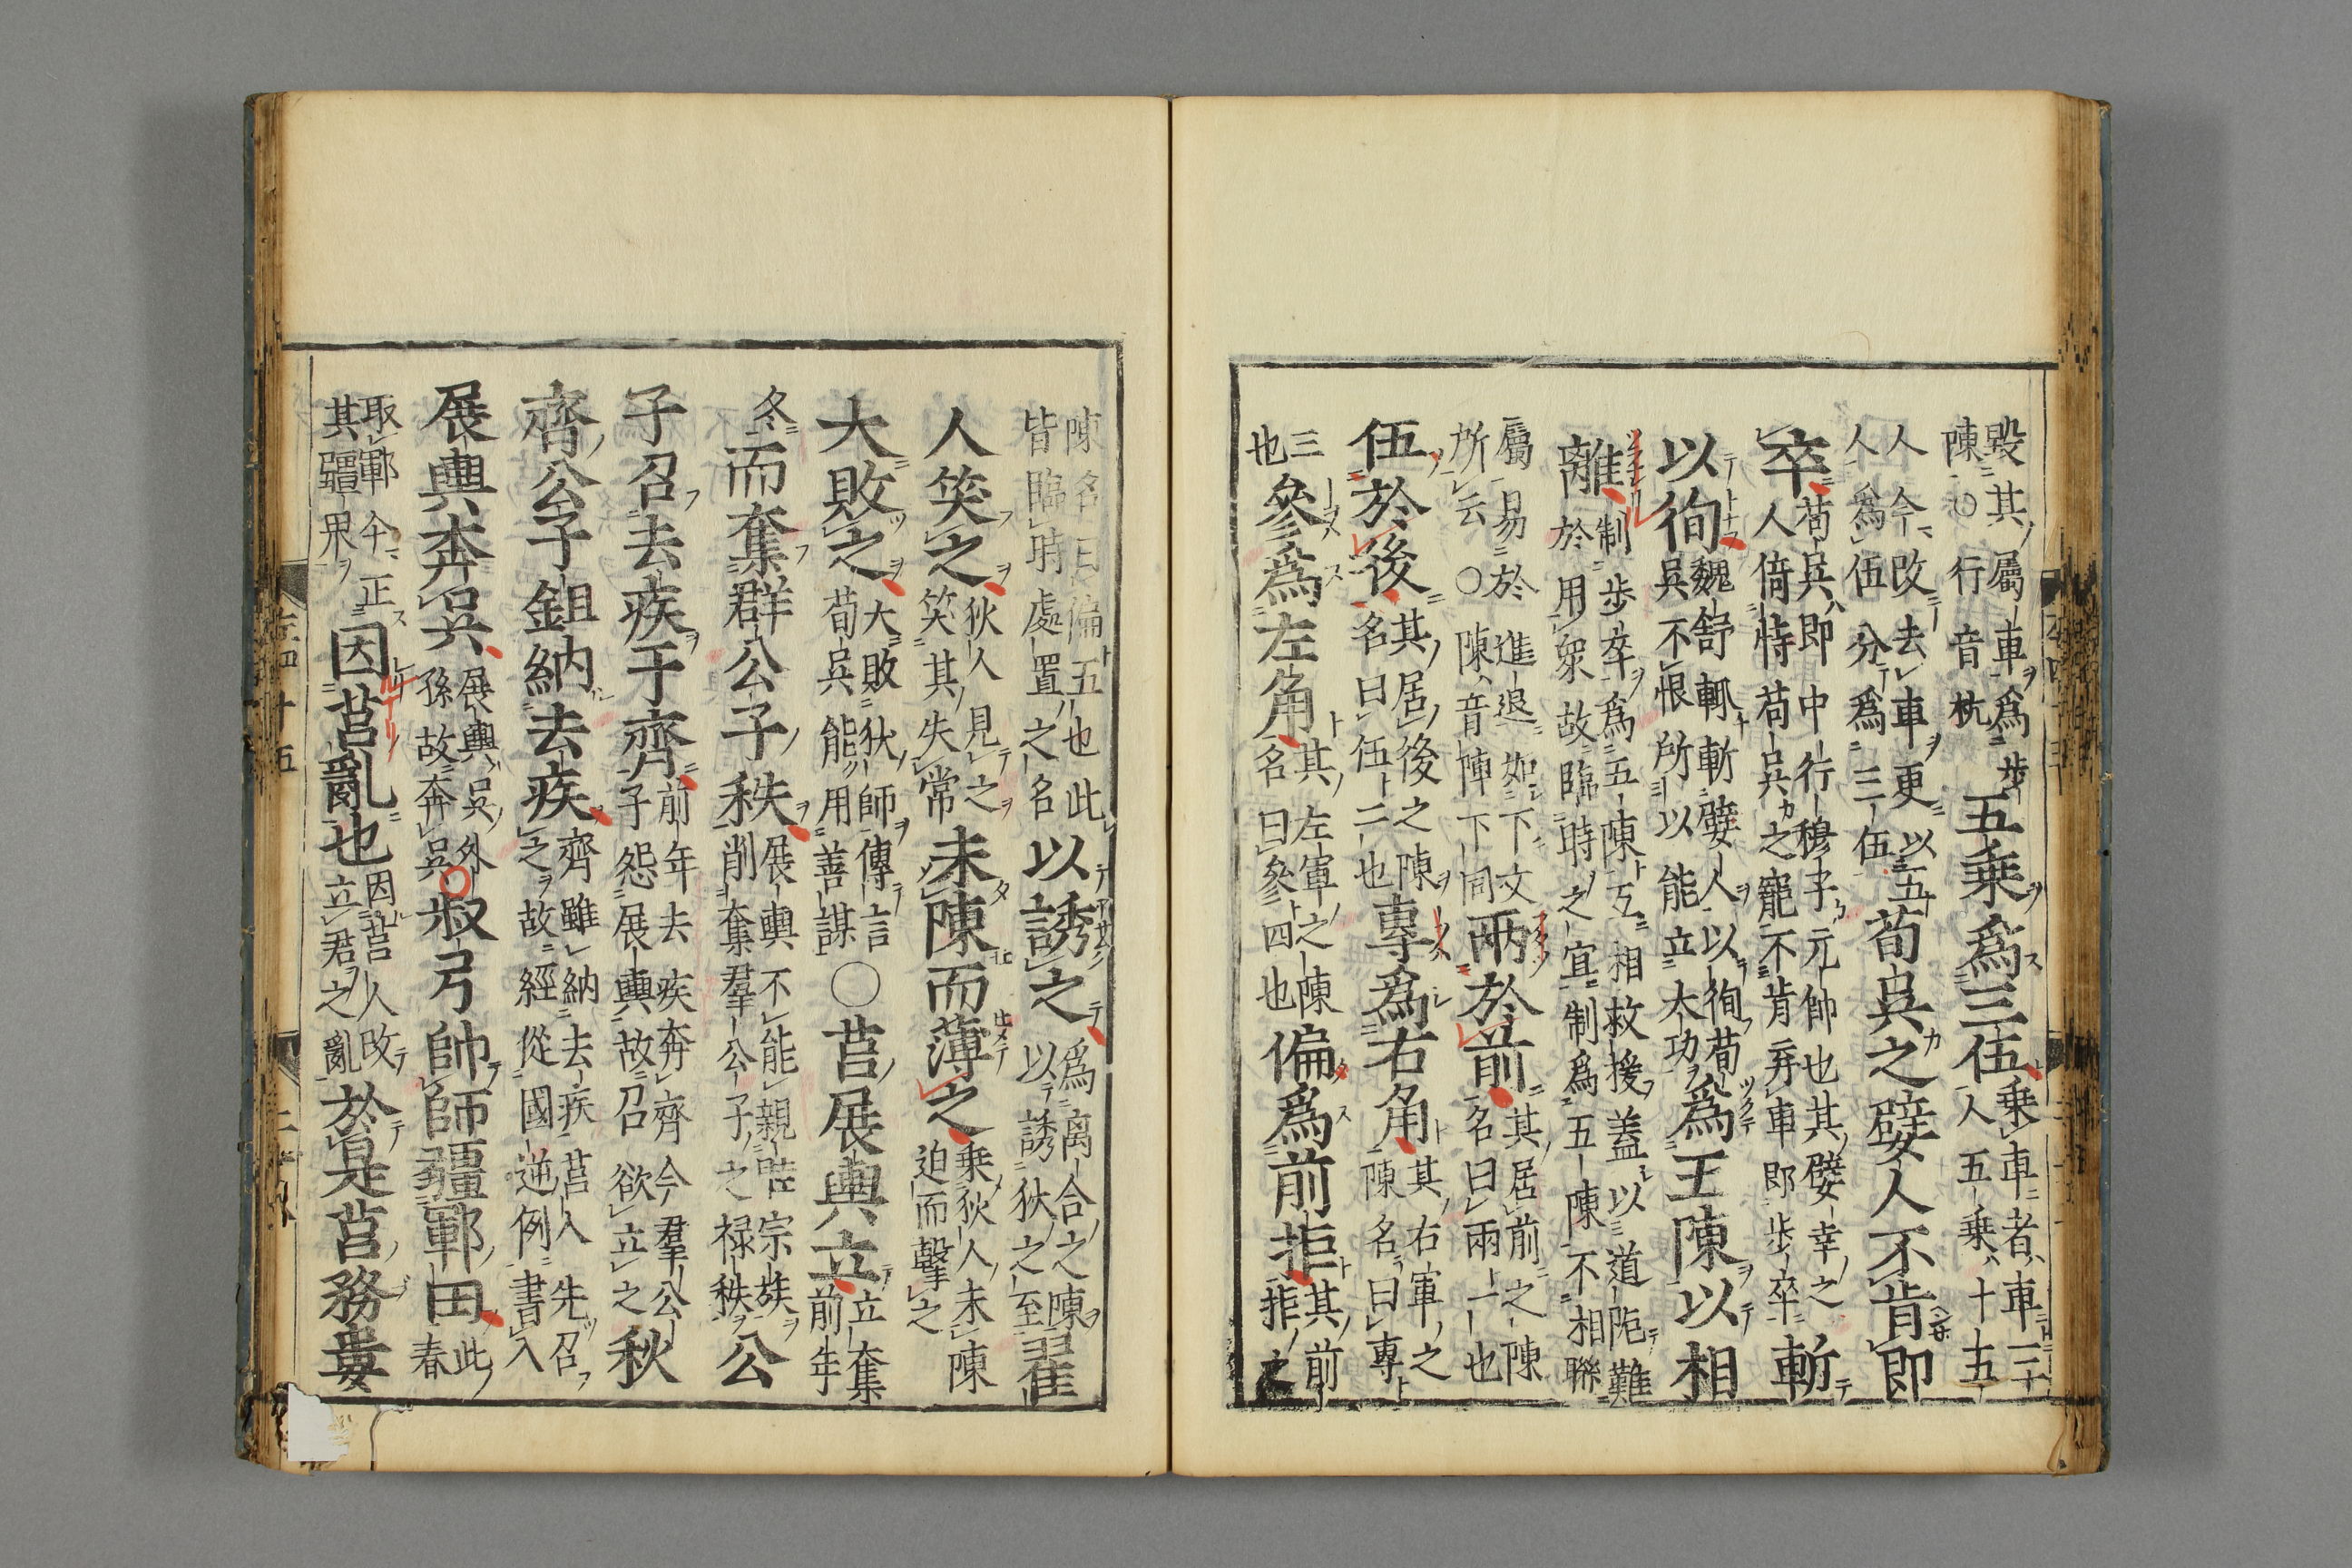 毀其屬車爲步陳○行音杭五乘爲三伍乘車者車三人五乘十五
人今改去車更以五人爲伍分爲三伍荀吳之嬖人不肯即
卒荀吳即中行穆子元帥也其嬖幸之人倚恃荀吳之寵不肯弃車即步卒斬
以徇魏舒輒斬嬖人以徇荀吳不恨所以能立大功爲王陳以相
離制步卒爲五陳互相救援蓋以道阨難於用衆故臨時之宜制爲五陳不相聯
屬易於進退如下文所云○陳音陣下同兩於前其居前之陳名曰兩一也
伍於後其居後之陳名曰伍二也專爲右角其右軍之陳名曰專
三也參爲左角其左軍之陳名曰參四也偏爲前拒其前拒之
陳名曰偏五也此皆臨時處置之名以誘之爲離合之陳以誘狄之至翟
人笑之狄人見之笑其失常未陳而薄之乘狄人未陳迫而擊之
大敗之大敗狄師傳言荀吳能用善謀○莒展輿立立奪前年
冬而奪群公子秩展輿不能親睦宗族削奪羣公子之禄秩公
子召去疾于齊前年去疾奔齊今羣公子怨展輿故召欲立之秋
齊公子鉏納去疾齊雖納去疾莒人先召之故經從國逆例書入
展輿奔吳展輿吳外孫故奔吳○叔弓帥師疆鄆田此春
取鄆今正其疆界因莒亂也因莒人改立君之亂於是莒務婁